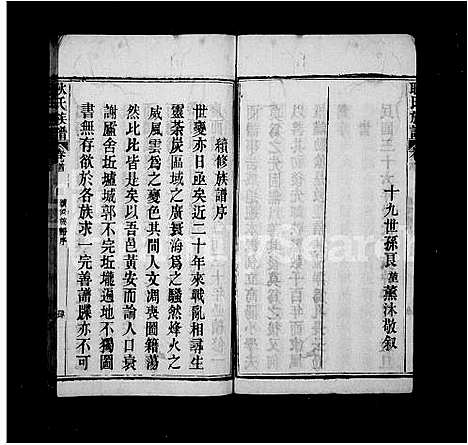 十九世孫良薰沐敬叙
耿氏族譜
卷首
續修族譜序
世變亦日亟矣近二十年來戰亂相尋生
靈荼炭區域之廣寰海為之騷然烽火之
威風雲為之變色其間人文凋喪圖籍蕩
然比比皆是矣以吾邑黃安而論人口衰
謝廬舍坵墟城郭不完坵壠過地不獨圖
書無存欲於各族求一完善譜牒亦不可
耿氏族譜
卷首
續修族譜序